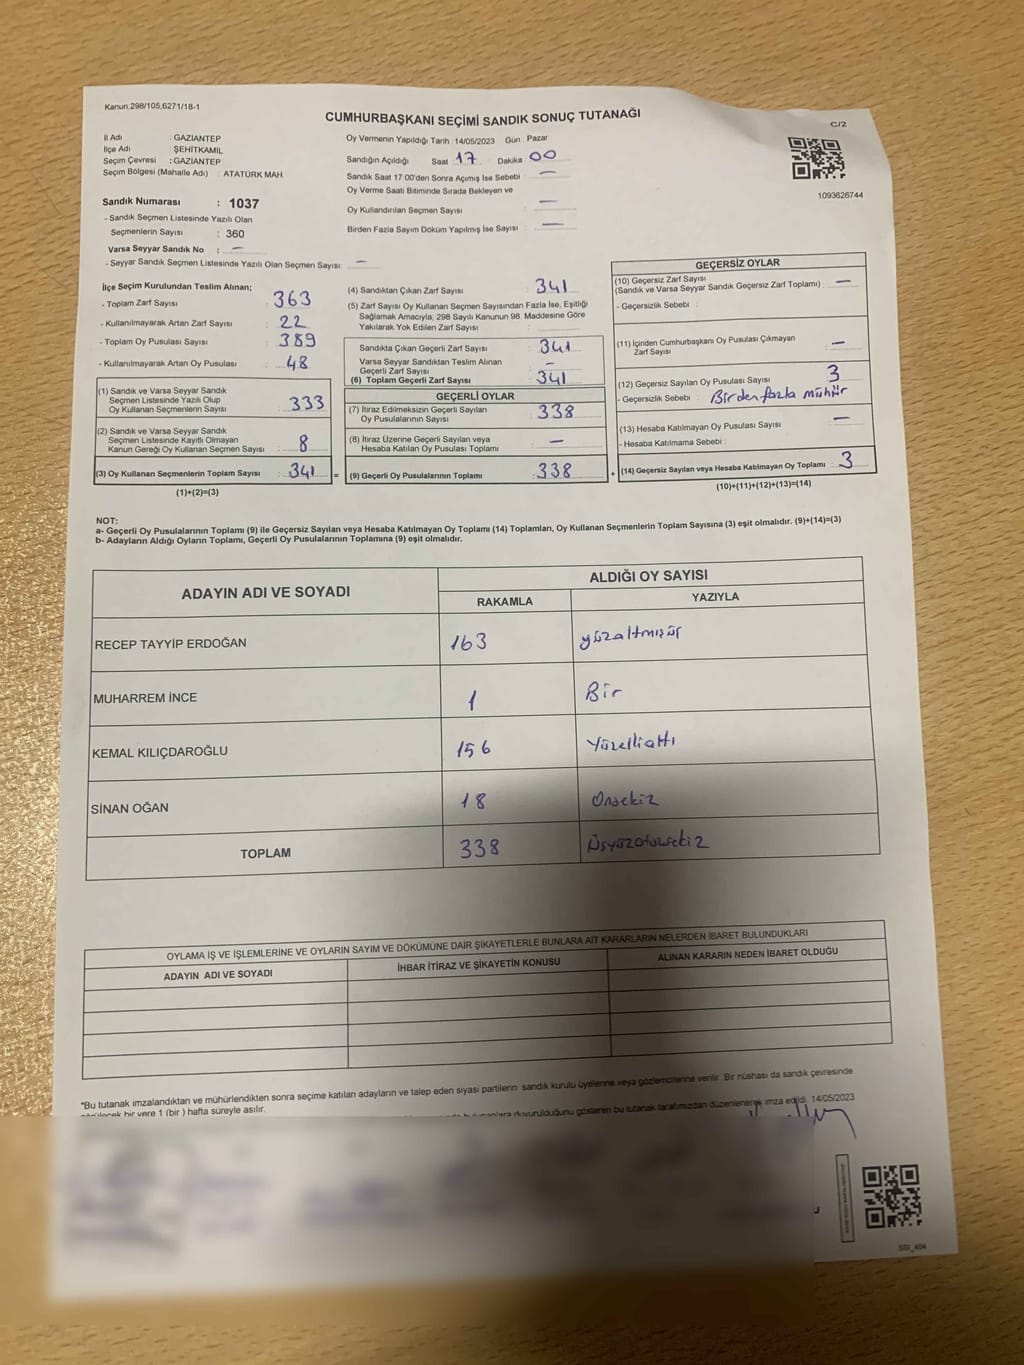 Kanun:298/105,6271/18-1
CUMHURBAŞKANI SEÇİMİ SANDIK SONUÇ TUTANAĞI
C/2
İl Adı : GAZİANTEP
İlçe Adı : ŞEHİTKAMİL
Seçim Çevresi : GAZİANTEP
Seçim Bölgesi (Mahalle Adı) : ATATÜRK MAH.
Sandık Numarası : 1037
- Sandık Seçmen Listesinde Yazılı Olan
Seçmenlerin Sayısı : 360
Varsa Seyyar Sandık No : —
- Seyyar Sandık Seçmen Listesinde Yazılı Olan Seçmen Sayısı: —
Oy Vermenin Yapıldığı Tarih 14/05/2023 Gün Pazar
Sandığın Açıldığı Saat 17 Dakika 00
Sandık Saat 17:00'den Sonra Açımış İse Sebebi : —
Oy Verme Saati Bitiminde Sırada Bekleyen ve
Oy Kullandırılan Seçmen Sayısı : —
Birden Fazla Sayım Döküm Yapılmış İse Sayısı : —
1093626744
İlçe Seçim Kurulundan Teslim Alınan;
- Toplam Zarf Sayısı : 363
- Kullanılmayarak Artan Zarf Sayısı : 22
- Toplam Oy Pusulası Sayısı : 389
- Kullanılmayarak Artan Oy Pusulası : 48
(1) Sandık ve Varsa Seyyar Sandık
Seçmen Listesinde Yazılı Olup
Oy Kullanan Seçmenlerin Sayısı : 333
(2) Sandık ve Varsa Seyyar Sandık
Seçmen Listesinde Kayıtlı Olmayan
Kanun Gereği Oy Kullanan Seçmen Sayısı : 8
(3) Oy Kullanan Seçmenlerin Toplam Sayısı : 341 =
(1)+(2)=(3)
(4) Sandıktan Çıkan Zarf Sayısı : 341
(5) Zarf Sayısı Oy Kullanan Seçmen Sayısından Fazla İse, Eşitliği
Sağlamak Amacıyla; 298 Sayılı Kanunun 98. Maddesine Göre
Yakılarak Yok Edilen Zarf Sayısı :
Sandıkta Çıkan Geçerli Zarf Sayısı : 341
Varsa Seyyar Sandıktan Teslim Alınan
Geçerli Zarf Sayısı : —
(6) Toplam Geçerli Zarf Sayısı : 341
GEÇERLİ OYLAR
(7) İtiraz Edilmeksizin Geçerli Sayılan
Oy Pusulalarının Sayısı : 338
(8) İtiraz Üzerine Geçerli Sayılan veya
Hesaba Katılan Oy Pusulası Toplamı : —
(9) Geçerli Oy Pusulalarının Toplamı : 338 +
GEÇERSİZ OYLAR
(10) Geçersiz Zarf Sayısı
(Sandık ve Varsa Seyyar Sandık Geçersiz Zarf Toplamı) : —
- Geçersizlik Sebebi :
(11) İçinden Cumhurbaşkanı Oy Pusulası Çıkmayan
Zarf Sayısı : —
(12) Geçersiz Sayılan Oy Pusulası Sayısı : 3
- Geçersizlik Sebebi : Birden fazla mühür
(13) Hesaba Katılmayan Oy Pusulası Sayısı : —
- Hesaba Katılmama Sebebi :
(14) Geçersiz Sayılan veya Hesaba Katılmayan Oy Toplamı : 3
(10)+(11)+(12)+(13)=(14)
NOT:
a- Geçerli Oy Pusulalarının Toplamı (9) ile Geçersiz Sayılan veya Hesaba Katılmayan Oy Toplamı (14) Toplamları, Oy Kullanan Seçmenlerin Toplam Sayısına (3) eşit olmalıdır. (9)+(14)=(3)
b- Adayların Aldığı Oyların Toplamı, Geçerli Oy Pusulalarının Toplamına (9) eşit olmalıdır.
ADAYIN ADI VE SOYADI
ALDIĞI OY SAYISI
RAKAMLA YAZIYLA
RECEP TAYYİP ERDOĞAN 163 yüzaltmışüç
MUHARREM İNCE 1 Bir
KEMAL KILIÇDAROĞLU 156 Yüzelli altı
SİNAN OĞAN 18 Onsekiz
TOPLAM 338 Üçyüzotuzsekiz
OYLAMA İŞ VE İŞLEMLERİNE VE OYLARIN SAYIM VE DÖKÜMÜNE DAİR ŞİKAYETLERLE BUNLARA AİT KARARLARIN NELERDEN İBARET BULUNDUKLARI
ADAYIN ADI VE SOYADI İHBAR İTİRAZ VE ŞİKAYETİN KONUSU ALINAN KARARIN NEDEN İBARET OLDUĞU
*Bu tutanak imzalandıktan ve mühürlendikten sonra seçime katılan adayların ve talep eden siyasi partilerin sandık kurulu üyelerine veya gözlemcilerine verilir. Bir nüshası da sandık çevresinde
görülecek bir yere 1 (bir) hafta süreyle asılır.
bulunanlara duyurulduğunu gösteren bu tutanak tarafımızdan düzenlenerek imza edildi. 14/05/2023